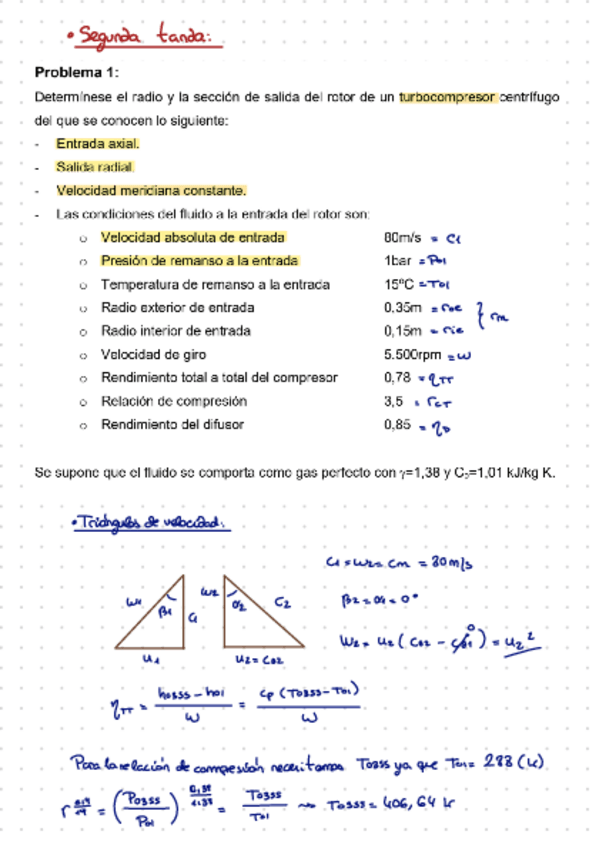 • Segunda tanda:
Problema 1:
Determínese el radio y la sección de salida del rotor de un turbocompresor centrífugo
del que se conocen lo siguiente:
- Entrada axial.
- Salida radial.
- Velocidad meridiana constante.
- Las condiciones del fluido a la entrada del rotor son:
o Velocidad absoluta de entrada 80m/s = C1
o Presión de remanso a la entrada 1bar = P01
o Temperatura de remanso a la entrada 15ºC = T01
o Radio exterior de entrada 0,35m = roe } rm
o Radio interior de entrada 0,15m = rie
o Velocidad de giro 5.500rpm = ω
o Rendimiento total a total del compresor 0,78 = ηTT
o Relación de compresión 3,5 = rCT
o Rendimiento del difusor 0,85 = ηD
Se supone que el fluido se comporta como gas perfecto con γ=1,38 y Cp=1,01 kJ/kg K.
• Triángulos de velocidad:
C1 = W2 = Cm = 80m/s
W1 β1 C1 W2 α2 C2
β2 = α1 = 0°
U1 U2 = Cθ2
W2 = U2 (Cθ2 - Cθ1) = U2²
0
ηTT = h03ss - h01 / W = Cp (T03ss - T01) / W
Para la relación de compresión necesitamos T03ss ya que T01 = 288 (K)
r = (P03ss / P01) 0,38/1,38 = T03ss / T01 → T03ss = 406,64 K